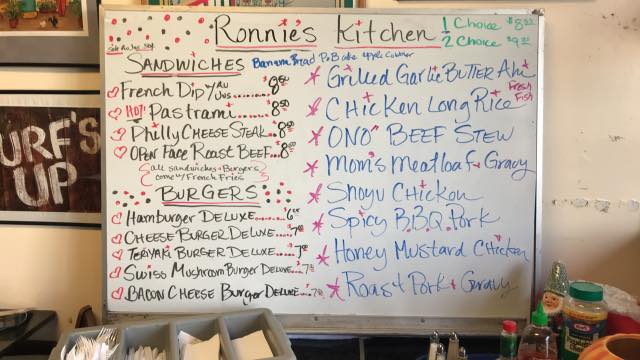 Ronnie's Kitchen
1 Choice $8.50
2 Choice $9.50
Side Rd. Veg. Salad
Banana Bread
SANDWICHES
French Dip w/Au Jus.....$8.50
HOT Pastrami.....$8.50
Philly Cheese Steak..$8.50
Open Face Roast Beef...$8.50
(all sandwiches + Burgers
come w/ French Fries)
BURGERS
Hamburger Deluxe.....$6.00
Cheese Burger Deluxe....$7.00
Teriyaki Burger Deluxe...$7.00
Swiss Mushroom Burger Deluxe..$7.50
Bacon Cheese Burger Deluxe..$7.50
Grilled Garlic BUTTER Ahi
Fresh Fish
Chicken Long Rice
"ONO" BEEF STEW
Mom's Meatloaf + Gravy
Shoyu Chicken
Spicy B.B.Q. Pork
Honey Mustard Chicken
Roast Pork + Gravy
URF'S
UP